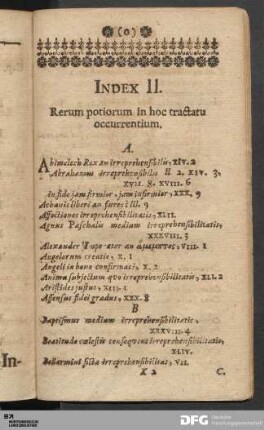 (o)
INDEX II.
Rerum potiorum in hoc tractatu
occurrentium.
A.
Abimelech Rex an irreprehensibilis, XIV. 2
Abrahamus irreprehensibilis II 2. XIV. 3,
XVII. 8. XVIII. 6
in fide jam firmior, jam infirmior, XXX. 9
liberè an III. 9
Affectiones irreprehensibilitatis, XLII.
Agnus Paschalis medium irreprehensibilitatis,
XXXVIII. 3
Alexander an VIII. 1
Angelorum creatio, X. 1
Angeli in bono confirmati, X. 2
Anima subjectum quo irreprehensibilitatis, XLI. 2
Aristides justus, XIII. 1
Assensus fidei gradus, XXX. 8
B
Baptismus medium irreprehensibilitatis,
XXXVIII. 4
Beatitudo cælestis consequens irreprehensibilitatis,
XLIV.
Bellarmini ficta irreprehensibilitas, VII.
X 2 C.
In-
DFG Deutsche
Forschungsgemeinschaft